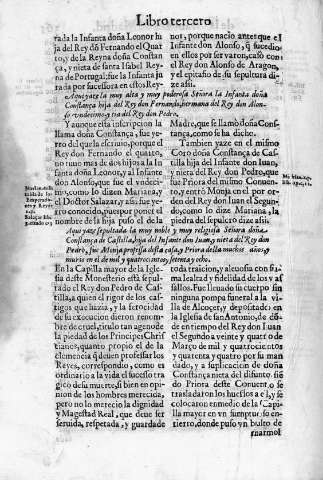 Libro tercero
rada la Infanta doña Leonor hi
ja del Rey dõ Fernando el Quar
to, y de la Reyna doña Constan
ça, y nieta de santa Isabel Reyna
de Portugal; fue la Infanta ju
rada por sucessora en estos Rey-
nos, porque nacio antes que el
Infante don Alonso, q̃ sucedio
en ellos por ser varon, casò con
el Rey don Alonso de Aragon,
y el epitafio de su sepultura dize
assi.
Aqui yaze la muy alta y muy poderosa Señora la Infanta doña
Constança hija del Rey don Fernando, hermana del Rey don Alon-
so vndecimo, y tia del Rey don Pedro.
Y aunque esta inscripcion la
llama doña Constança, fue ye-
rro del que la escriuio, porque el
Rey don Fernando el quarto,
no tuuo mas de dos hijos a la In
fanta doña Leonor, y al Infante
don Alonso, que fue el vndeci-
mo, como lo dizen Mariana, y
el Doctor Salazar, y assi fue ye-
rro conocido, pues por poner el
nombre de la hija pusieron el de la
Madre, que se llamò doña Cons-
tança, como se ha dicho.
Tambien yaze en el mismo
Coro doña Constança de Cas-
tilla hija del Infante don Iuan,
y nieta del Rey don Pedro, que
fue Priora del mismo Conuen-
to, y entrò Monja en el por or-
den del Rey don Iuan el Segun-
do, como lo dize Mariana, la
piedra del sepulcro dize assi.
Aqui yaze sepultada la muy noble y muy religiosa Señora doña
Constança de Castilla, hija del Infante don Iuan, y nieta del Rey don
Pedro, fue Monja professa desta casa, y Priora della muchos años, y
murio en el de mil y quatrocientos y setenta y ocho.
En la Capilla mayor de la Igle
sia deste Monesterio està sepul-
tado el Rey don Pedro de Cas-
tilla, a quien el rigor de los cas-
tigos que hazia, y la ferocidad
de su execucion dieron renom-
bre de cruel, titulo tan ageno de
la piedad de los Principes Chris
tianos, quanto propio el de la
clemencia q̃ deuen professar los
Reyes, correspondio, como es
ordinario a la vida el sucesso tra
gico de su muerte, si bien en opi-
nion de los hombres merecida,
pero no lo merecio la dignidad
y Magestad Real, que deue ser
seruida, respetada, y guardada
toda traicion, y aleuosia con su-
ma lealtad y fidelidad de los vas
sallos. Fue lleuado su cuerpo sin
ninguna pompa funeral a la vi-
lla de Alcocer, y depositado en
la Iglesia de san Antonio, de dõ-
de en tiempo del Rey don Iuan
el Segundo a veinte y quatro de
Março de mil y quatrocientos
y quarenta y quatro por su man
dado, y a suplicacion de doña
Constança nieta del difunto, siẽ
do Priora deste Conuento, se
trasladaron los huessos a el, y se
colocaron en medio de la Capi
lla mayor en vn sumptuoso en-
tierro, donde puso vn bulto de
marmol